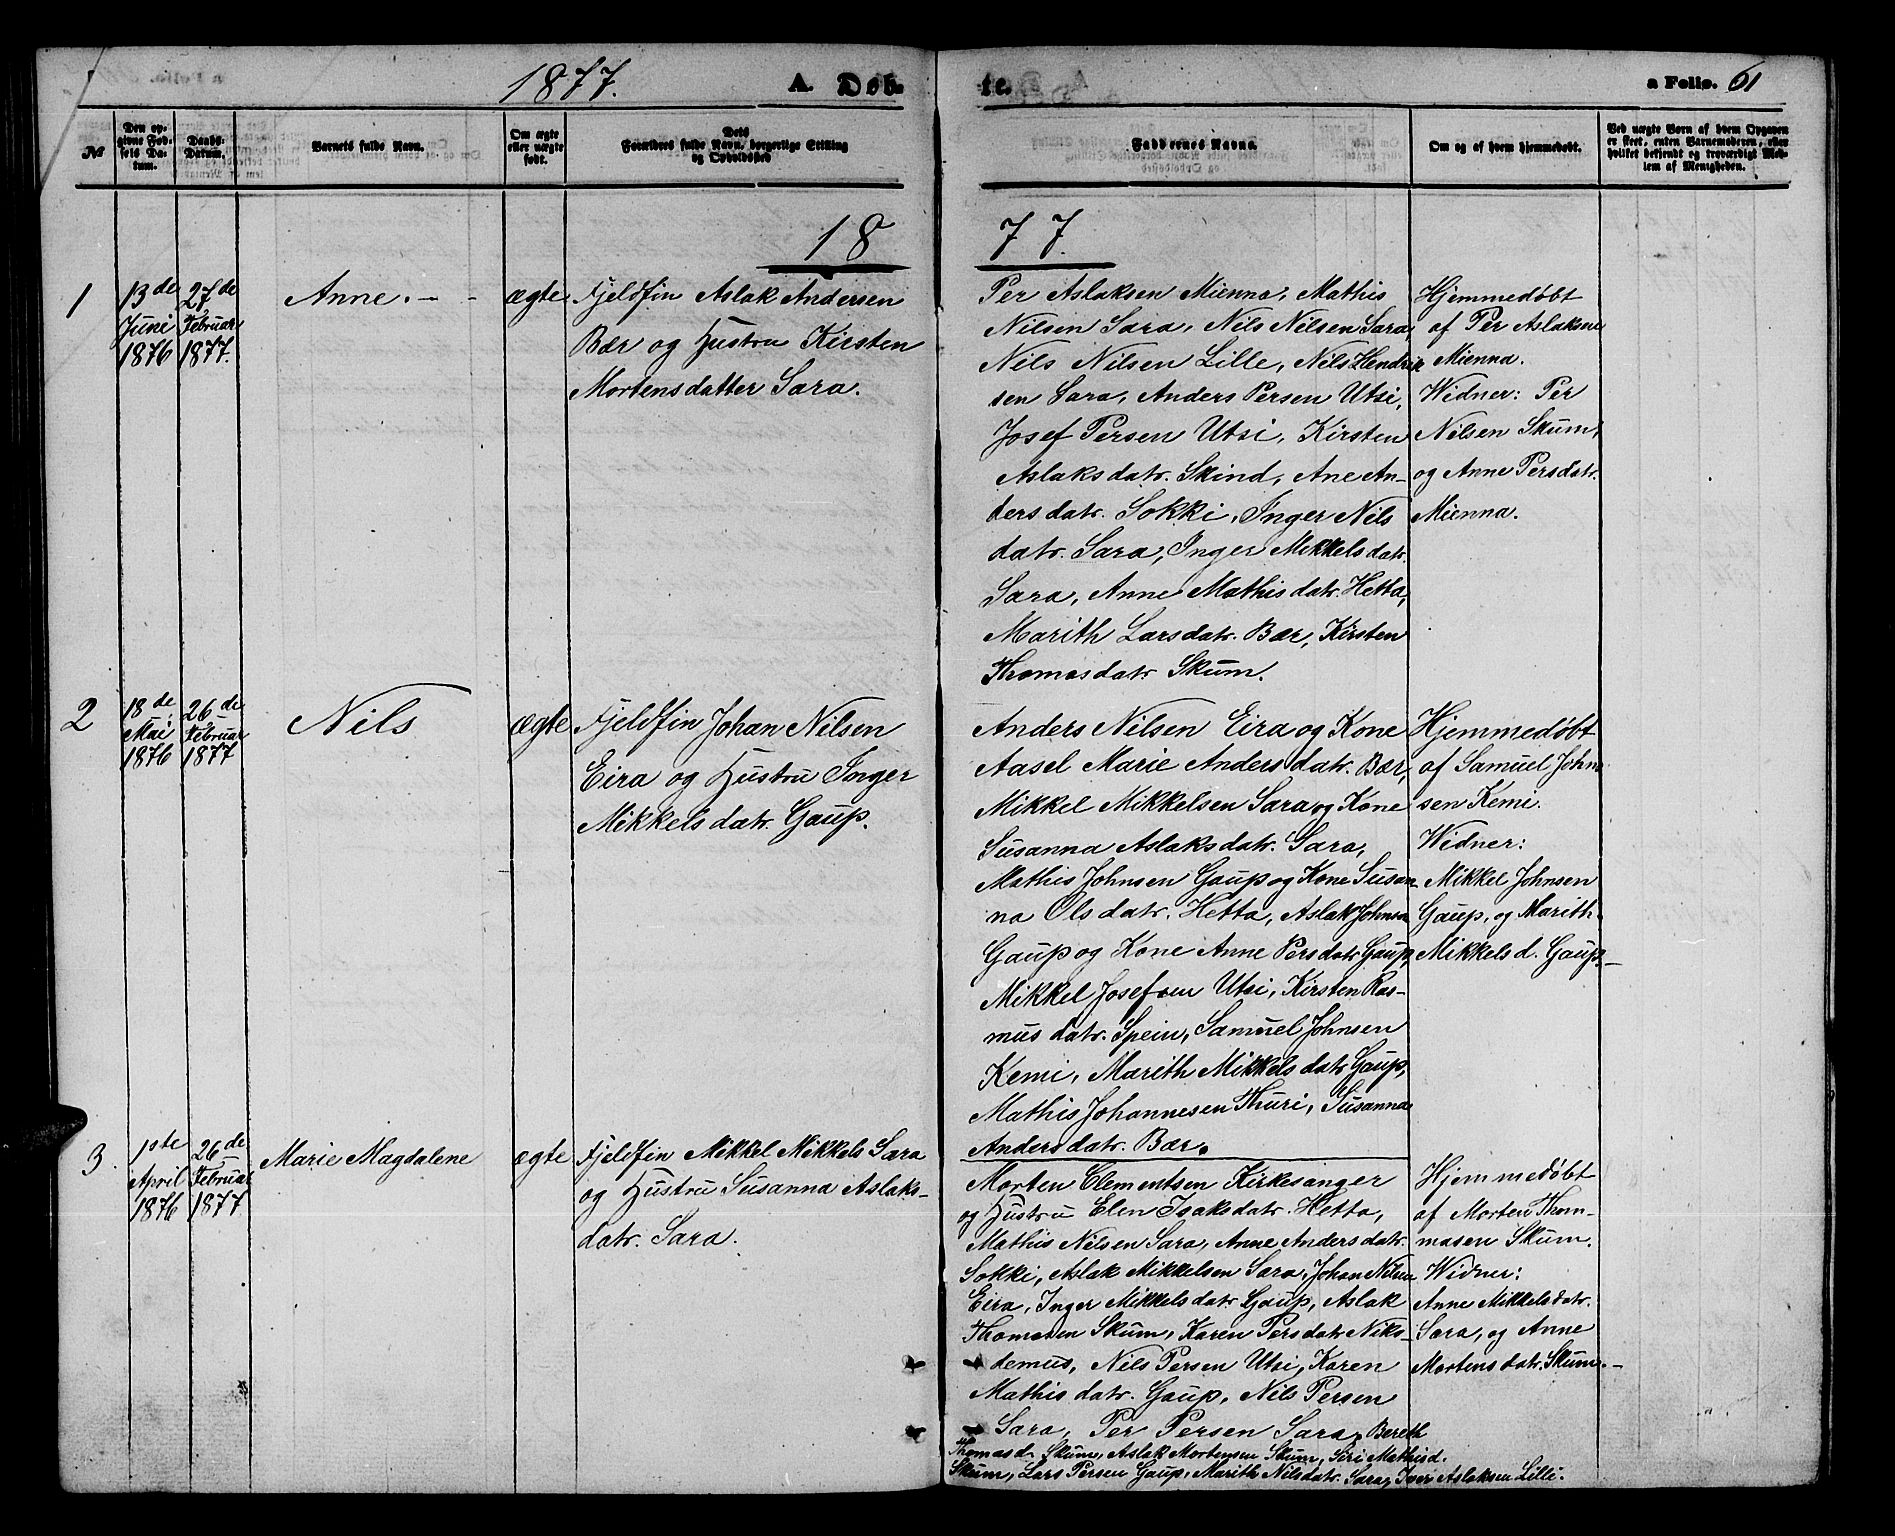 1877. A. Døb-
te. a Folio. 61
№
Den op-
givne Fød-
sels Da-
tum.
Daabs-
Datum.
Barnets fulde Navn.
Om ægte
eller uægte
født.
Dets
Forældres fulde Navn, borgerlige Stilling
og Opholdssted
Faddernes Navne.
Om og af hvem hjemmedøbt.
Ved uægte Børn af hvem Opgaven
er skeet, enten Barnemoderen, eller
hvilket bekjendt og troværdigt Med-
lem af Menigheden.
18
77.
1
13de
Juni
1876
27de
Februar
1877.
Anne. - -
ægte
Fjeldfin Aslak Andersen
Bær og Hustru Kirsten
Mortensdatter Sara.
Per Aslaksen Mienna, Mathis
Nilsen Sara, Nils Nilsen Sara,
Nils Nilsen Lille, Nils Hendrik
sen Sara, Anders Persen Utsi,
Josef Persen Utsi, Kirsten
Aslaksdatr. Skind, Ane An-
dersdatr. Sokki, Inger Nils
datr. Sara, Inger Mikkelsdatr.
Sara, Anne Mathisdatr. Hetta,
Marith Larsdatr. Bær, Kirsten
Thomasdatr. Skum.
Hjemmedøbt
af Per Aslaksen
Mienna.
Widner: Per
Nilsen Skum,
og Anne Persdatr.
Mienna.
2
18de
Mai
1876
26de
Februar
1877
Nils
ægte
Fjeldfin Johan Nilsen
Eira og Hustru Inger
Mikkelsdatr. Gaup.
Anders Nilsen Eira og Kone
Aasel Marie Andersdatr. Bær,
Mikkel Mikkelsen Sara og Kone
Susanna Aslaksdatr. Sara,
Mathis Johnsen Gaup og Kone Susan
na Olsdatr. Hetta, Aslak Johnsen
Gaup og Kone Anne Persdatr Gaup,
Mikkel Josefsen Utsi, Kirsten Ras-
musdatr. Spein, Samuel Johnsen
Kemi, Marith Mikkelsdatr Gaup,
Mathis Johannesen Thuri, Susanna
Andersdatr. Bær.
Hjemmedøbt
af Samuel John
sen Kemi.
Widner:
Mikkel Johnsen
Gaup, og Marith
Mikkelsd. Gaup.-
3.
1ste
April
1876
26de
Februar
1877
Marie Magdalene
ægte
Fjeldfin Mikkel Mikkels Sara
og Hustru Susanna Aslaks-
datr. Sara.
Morten Clementsen Kirkesanger
og Hustru Elen Isaksdatr. Hetta,
Mathis Nilsen Sara, Anne Andersdatr.
Sokki, Aslak Mikkelsen Sara, Johan Nilsen
Eira, Inger Mikkelsdatr Gaup, Aslak
Thomasen Skum, Karen Persdatr Niko-
demus, Nils Persen Utsi, Karen
Mathisdatr. Gaup, Nils Persen
Sara, Per Persen Sara, Bereth
Thomasd. Skum, Aslak Mortensen Skum, Siri Mathisd.
Skum, Lars Persen Gaup, Marith Nilsdatr. Sara, Iver Aslaksen Lille.
Hjemmedøbt
af Morten Thom-
masen Skum.
Widner:
Anne Mikkelsdatr.
Sara, og Anne
Mortensdatr. Skum.-